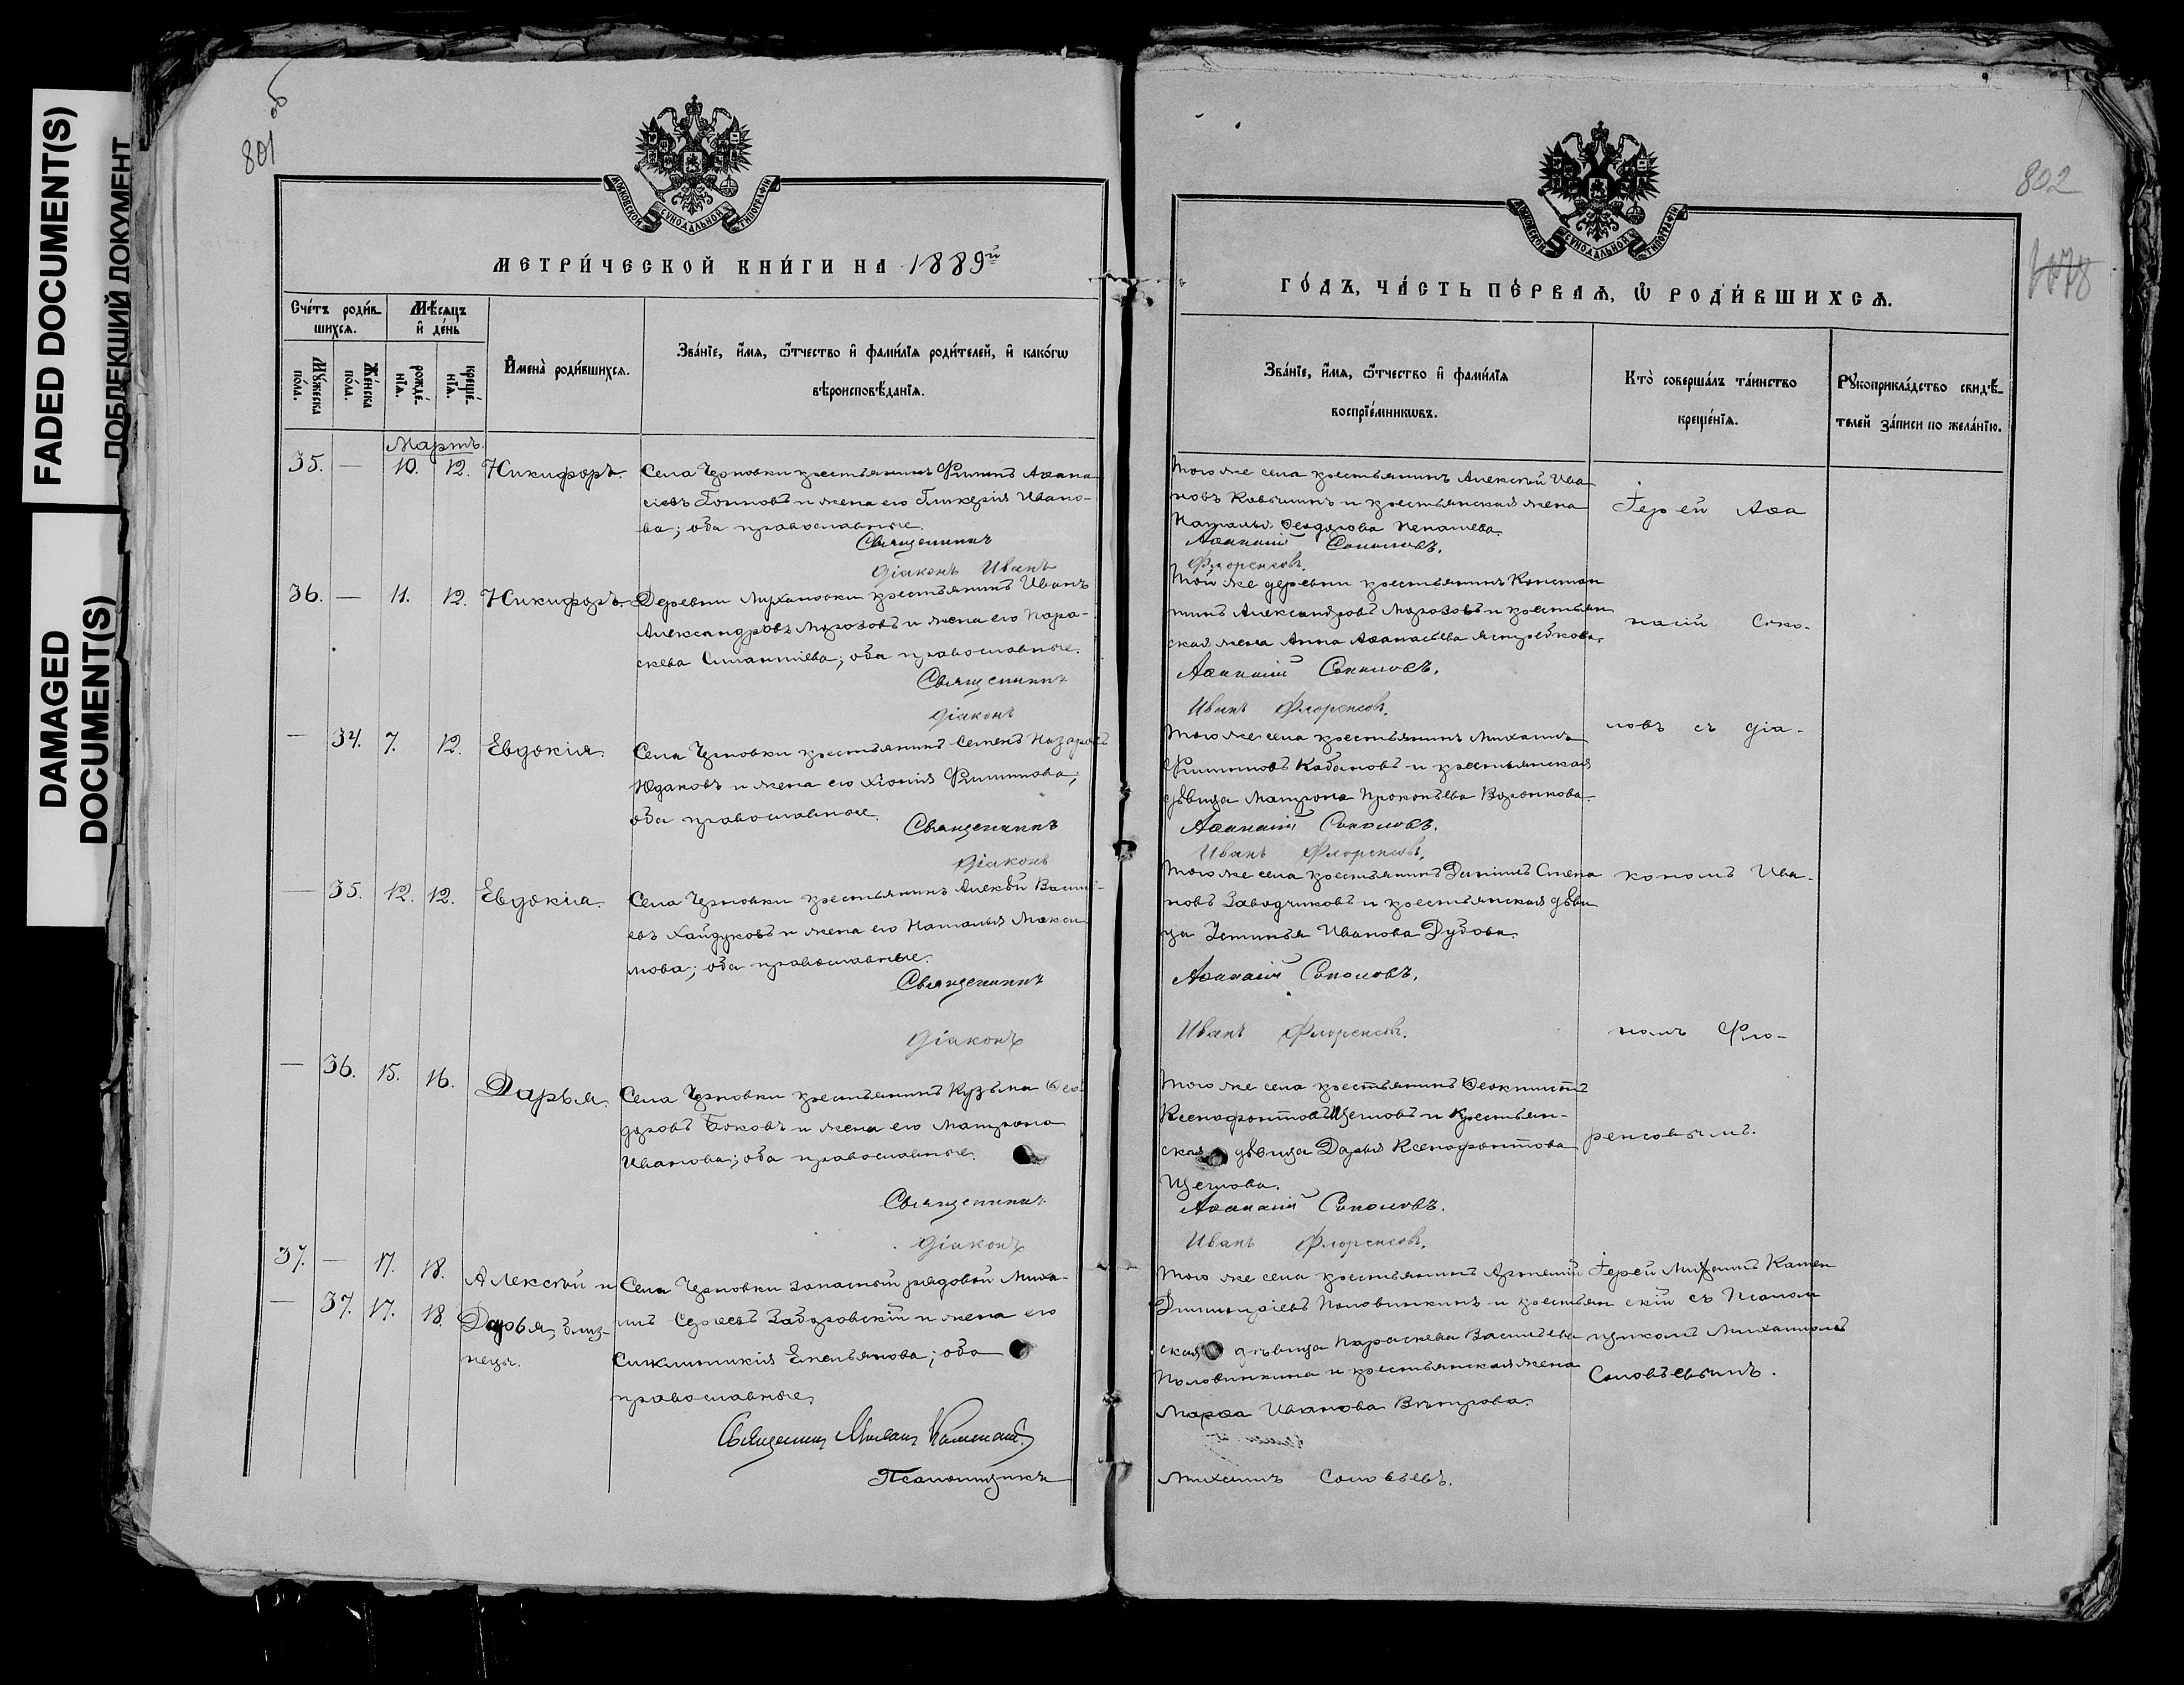 FADED DOCUMENT(S)
DAMAGED
DOCUMENT(S)
801 об
МОСКОВСКОЙ СѴНОДАЛЬНОЙ ТИПОГРАФІИ
МЕТРИ́ЧЕСКОЙ КНИ́ГИ НА 1889й
Сче́тъ роди́в-
шихсѧ.
Мѣ́сѧцъ
и҆ де́нь
Мꙋ́жеска
по́ла.
Же́нска
по́ла.
рожде́-
нїѧ.
креще́-
нїѧ.
И҆мена̀ роди́вшихсѧ.
Зва́нїе, и҆́мѧ, ѻ҆́тчество и҆ фами́лїѧ роди́телей, и҆ како́гѡ
вѣроисповѣ́данїѧ.
Мартъ.
35. — 10. 12. Никифоръ. Села Черновки крестьянинъ Филиппъ Аѳана-
сіевъ и жена его Гликерія Ивано-
ва; оба православные.
Священникъ
Діаконъ Иванъ
36. — 11. 12. Никифоръ. Деревни крестьянинъ Иванъ
Александровъ Морозовъ и жена его Пара-
скева Силантіева; оба православные.
Священникъ
Діаконъ
— 34. 7. 12. Евдокія. Села Черновки крестьянинъ Семенъ Назаровъ
Юдаковъ и жена его Хіонія Филиппова;
оба православные.
Священникъ
Діаконъ
— 35. 12. 12. Евдокіа. Села Черновки крестьянинъ Алексѣй Василь-
евъ Хайдуковъ и жена его Наталья Макси-
мова; оба православные.
Священникъ
Діаконъ
— 36. 15. 16. Дарья. Села Черновки крестьянинъ Кузьма Ѳео-
доровъ Боковъ и жена его Матрона
Иванова; оба православные.
Священникъ
Діаконъ
37. — 17. 18. Алексѣй и Села Черновки запасный рядовой Миха-
— 37. 17. 18. Дарья, близ- илъ Сергеевъ Заборовскій и жена его
нецы. Синклитикія Емельянова; оба
православные.
Священникъ Михаилъ Каменскій
Псаломщикъ
802
1078
МОСКОВСКОЙ СѴНОДАЛЬНОЙ ТИПОГРАФІИ
ГО́ДЪ, ЧА́СТЬ ПЕ́РВАѦ, Ѡ҆ РОДИ́ВШИХСѦ.
Зва́нїе, и҆́мѧ, ѻ҆́тчество и҆ фами́лїѧ
воспрїе́мникѡвъ.
Кто̀ соверша́лъ та́инство
креще́нїѧ.
Рꙋкоприкла́дство свидѣ́-
телей за́писи по жела́нїю.
Того же села крестьянинъ Алексѣй Ива-
новъ и крестьянская жена
Наталья Ѳеодорова Ненашева.
Аѳанасій Соколовъ.
Флоренсовъ.
Той же деревни крестьянинъ Констан-
тинъ Александровъ Морозовъ и крестьян-
ская жена Анна Аѳанасьева Ястребкова.
Аѳанасій Соколовъ.
Иванъ Флоренсовъ.
Того же села крестьянинъ Михаилъ
Филипповъ Кабановъ и крестьянская
дѣвица Матрона Прокопьева Воронкова.
Аѳанасій Соколовъ.
Иванъ Флоренсовъ.
Того же села крестьянинъ Даніилъ Степа-
новъ Заводчиковъ и крестьянская дѣви-
ца Устинья Иванова Дубова.
Аѳанасій Соколовъ.
Иванъ Флоренсовъ.
Того же села крестьянинъ Ѳеоктистъ
Ксенофонтовъ Щегловъ и крестьян-
ская дѣвица Дарья Ксенофонтова
Щеглова.
Аѳанасій Соколовъ.
Иванъ Флоренсовъ.
Того же села крестьянинъ Артемій
Димитріевъ Половинкинъ и крестьян-
ская дѣвица Параскева Васильева
Половинкина и крестьянская жена
Марѳа Иванова Вѣтрова.
Михаилъ Соловьевъ.
Іерей Аѳа
насій Соко-
ловъ съ діа-
кономъ Ива-
номъ Фло-
ренсовымъ.
Іерей Михаилъ Камен
скій съ Псалом
щикомъ Михаиломъ
Соловьевымъ.